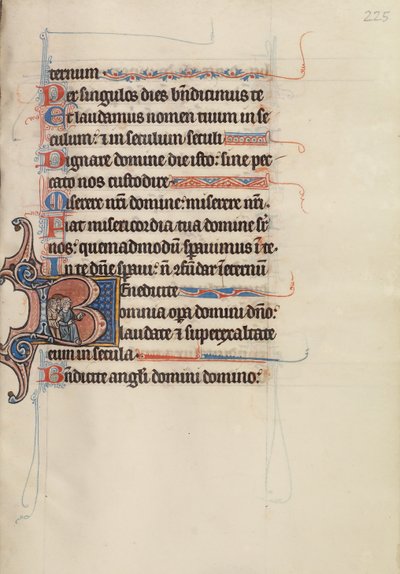 225
ternum
Per singulos dies bndicimus te
Et laudamus nomen tuum in se
culum: et in seculum seculi
Dignare domine die isto: sine pec
cato nos custodire
Miserere nri domine: miserere nri.
Fiat misericordia tua domine sr
nos: quemadmodu sperauimus i te.
In te dne speraui: n confundar i eternu
Benedicite
omnia opera domini dno:
laudate et superexaltate
eum in secula
Bndicite angli domini domino: